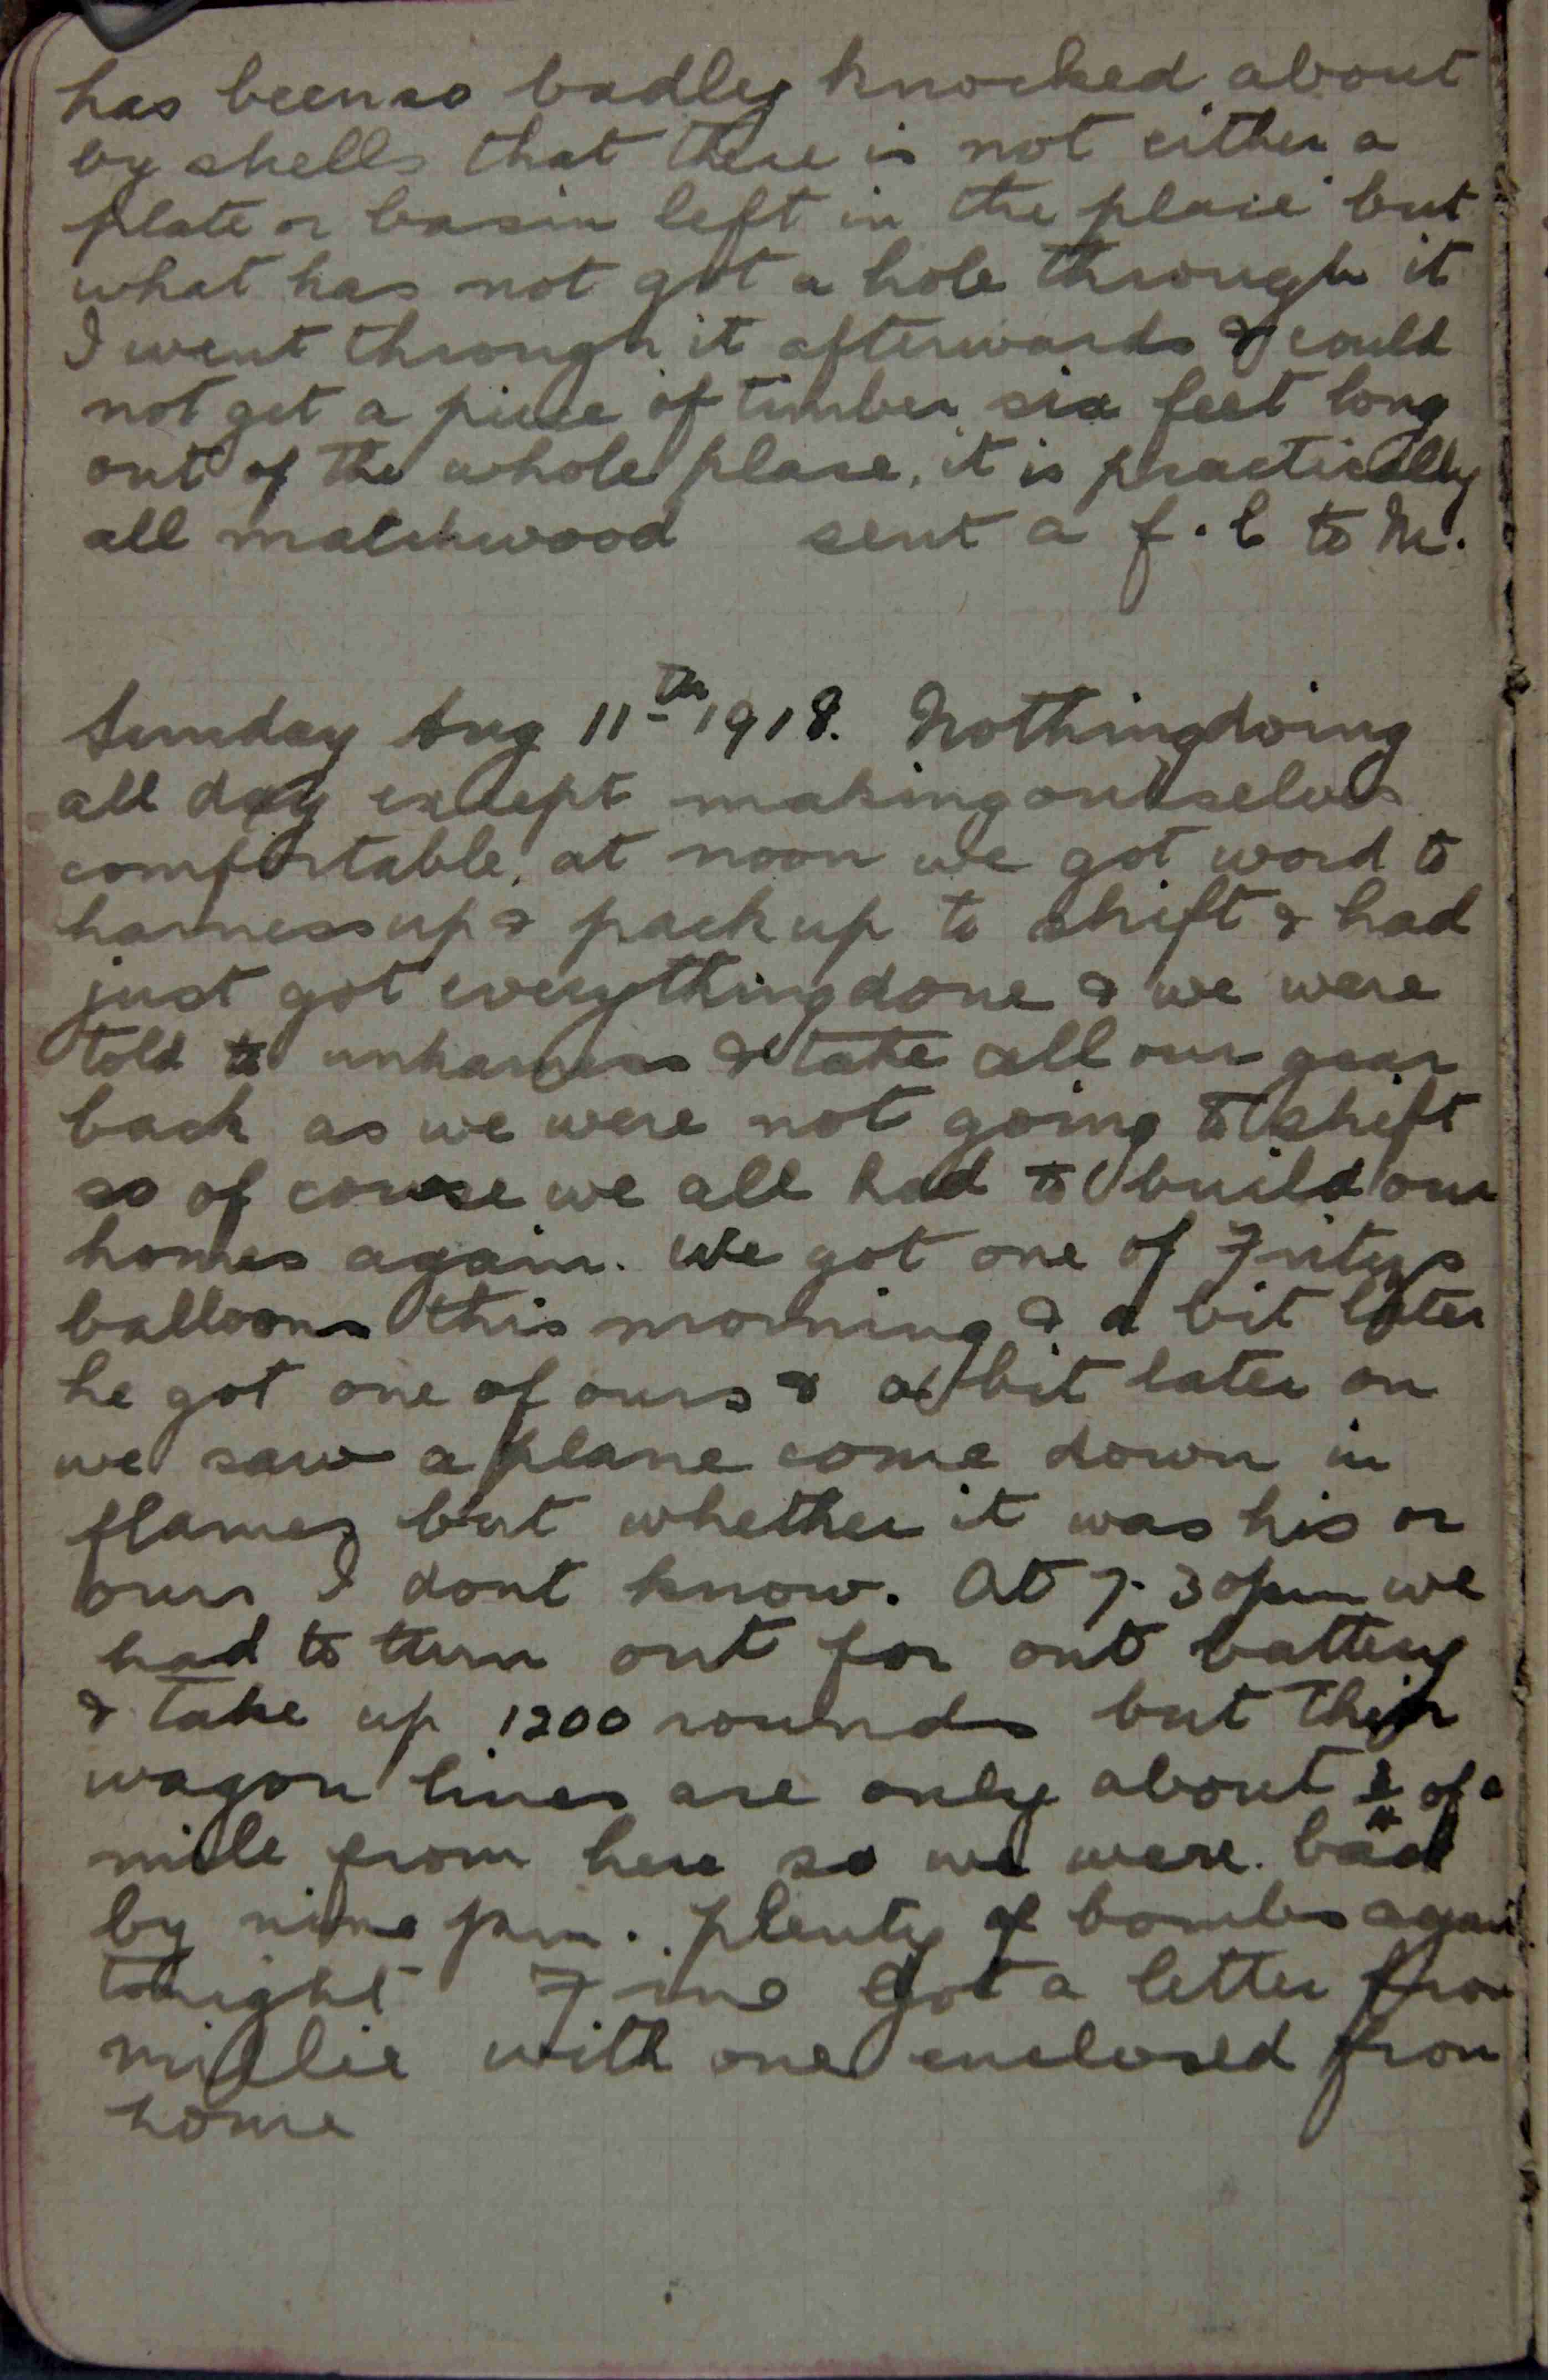 has been so badly knocked about
by shells that there is not either a
plate or basin left in the place but
what has not got a hole through it
I went through it afterwards & could
not get a piece of timber six feet long
out of the whole place, it is practically
all matchwood sent a f.c to M.
Sunday Aug 11th 1918. Nothing doing
all day except making ourselves
comfortable, at noon we got word to
harness up & pack up to shift & had
just got everything done & we were
told to unharness & take all our gear
back as we were not going to shift
so of course we all had to build our
homes again. We got one of Fritys
balloons this morning & a bit later
he got one of ours & a bit later on
we saw a plane come down in
flames but whether it was his or
ours I dont know. At 7.30pm we
had to turn out for out battery
& take up 1200 rounds but their
wagon lines are only about of a
mile from here so we were back
by nine pm. plenty of bombs again
tonight Fine Got a letter from
millie with one enclosed from
home